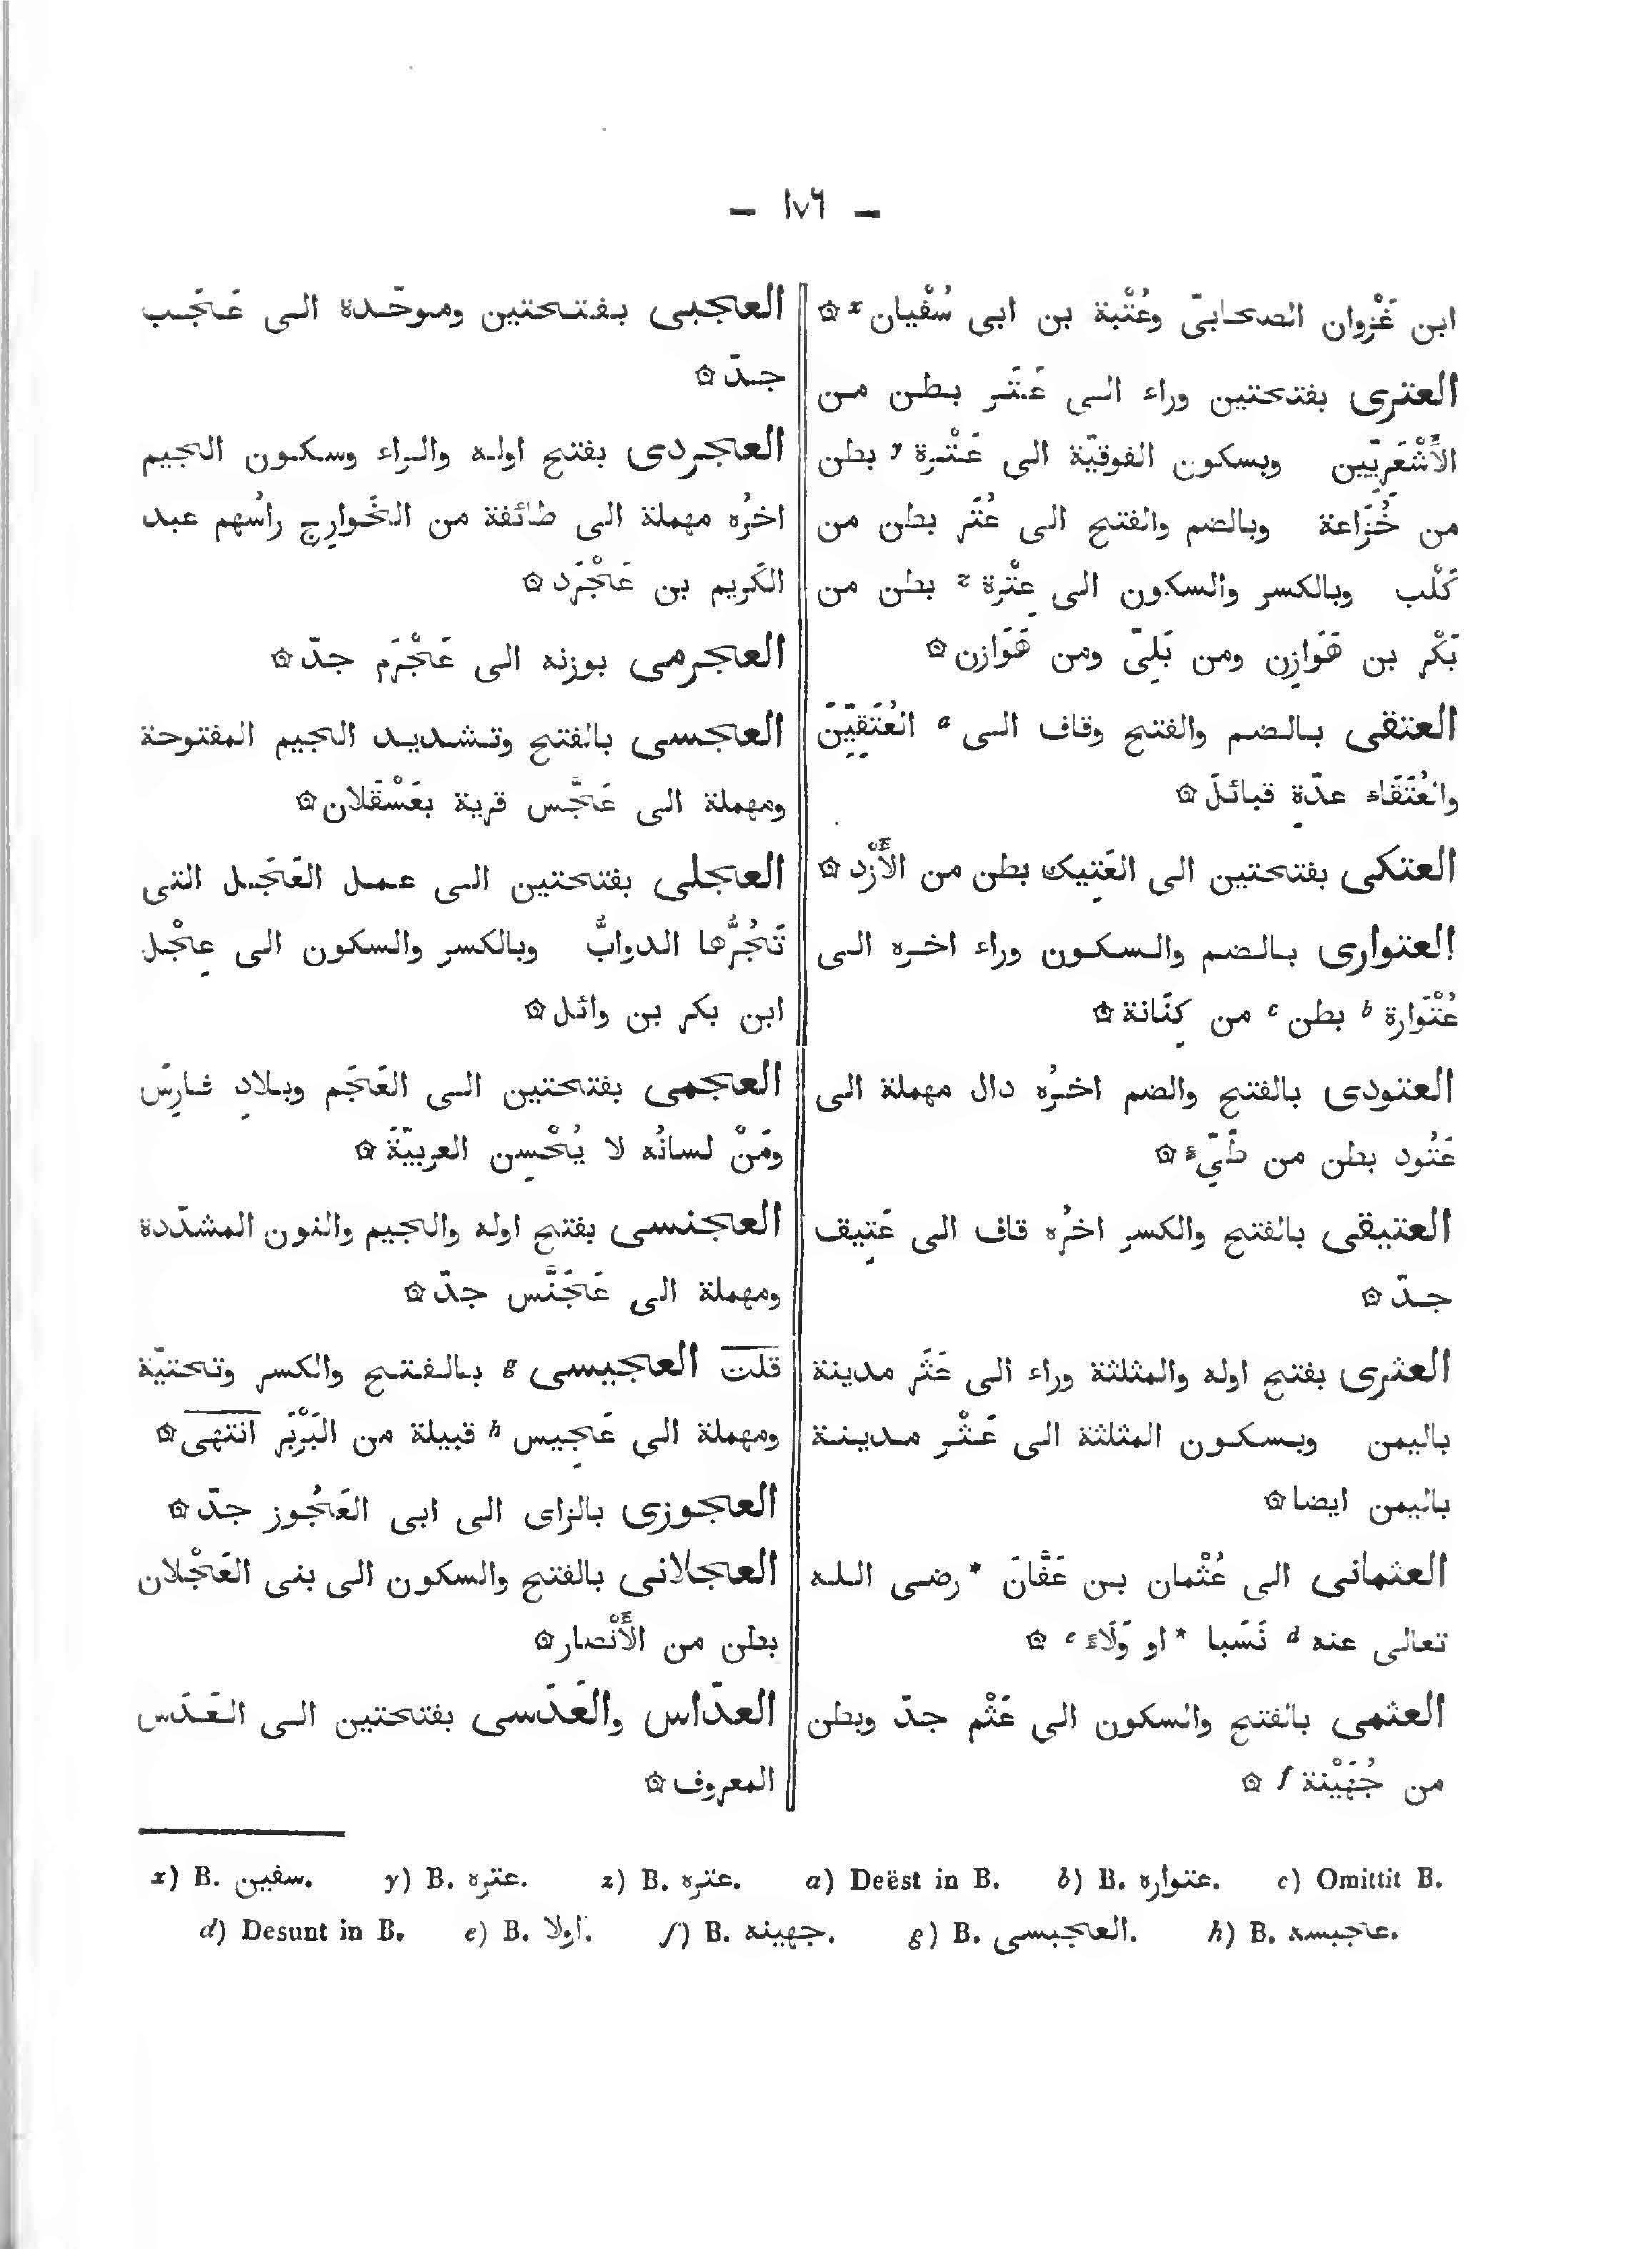 — ١٧٦ —
ابن غَزْوان الصحابىّ وعُتْبة بن ابى سُفْيان x ۞
العترى بفتحتين وراء الى عَتَر بطن من
الأَشْعَرِيّين وبسكون الفوقيّة الى عَتْرة y بطن
من خُزَاعة وبالضم والفتح الى عُتَر بطن من
كَلْب وبالكسر والسكون الى عِتْرة z بطن من
بَكْر بن هَوَازِن ومن بَلِىّ ومن هَوَازن ۞
العتقى بالضم والفتح وقاف الى a العُتَقِيّينَ
والعُتَقَاء عدّةِ قبائلَ ۞
العتكى بفتحتين الى العَتِيك بطن من الأَزْد ۞
العتوارى بالضم والسكون وراء اخره الى
عُتْوَارة b بطن c من كِنَانة ۞
العتودى بالفتح والضم اخرُه دال مهملة الى
عَتُود بطن من طَيِّء ۞
العتيقى بالفتح والكسر اخرُه قاف الى عَتِيق
جدّ ۞
العثرى بفتح اوله والمثلثة وراء الى عَثَر مدينة
باليمن وبسكون المثلثة الى عَثْر مدينة
باليمن ايضا ۞
العثمانى الى عُثْمان بن عَفَّانَ * رضى الله
تعالى عنه d نَسَبا * او وَلَاءً e ۞
العثمى بالفتح والسكون الى عَثْم جدّ وبطن
من جُهَيْنة f ۞
العجبى بفتحتين وموحّدة الى عَجَب
جدّ ۞
العجردى بفتح اوله والراء وسكون الجيم
اخرُه مهملة الى طائفة من الخَوارِج رأسُهم عبد
الكَريم بن عَجْرَد ۞
العجرمى بوزنه الى عَجْرَم جدّ ۞
العجسى بالفتح وتشديد الجيم المفتوحة
ومهملة الى عَجَّس قرية بعَسْقَلان ۞
العجلى بفتحتين الى عمل العَجَل التى
تَجُرُّها الدوابُّ وبالكسر والسكون الى عِجْل
ابن بكر بن وائل ۞
العجمى بفتحتين الى العَجَم وبلادِ فارِسَ
ومَنْ لسانُه لا يُحْسِن العربيّةَ ۞
العجنسى بفتح اوله والجيم والنون المشدّدة
ومهملة الى عَجَنَّس جدّ ۞
قلت العجيسى g بالفتح والكسر وتحتيّة
ومهملة الى عَجِيس h قبيلة من البَرْبَر انتهى ۞
العجوزى بالزاى الى ابى العَجُوز جدّ ۞
العجلانى بالفتح والسكون الى بنى العَجْلان
بطن من الأَنْصار ۞
العدّاس والعَدَسى بفتحتين الى العَدَس
المعروف ۞
x) B. سفين. y) B. عتره. z) B. عتره. a) Deëst in B. b) B. عتواره. c) Omittit B.
d) Desunt in B. e) B. اولا. f) B. جهينه. g) B. العجبسى. h) B. عاجبسه.